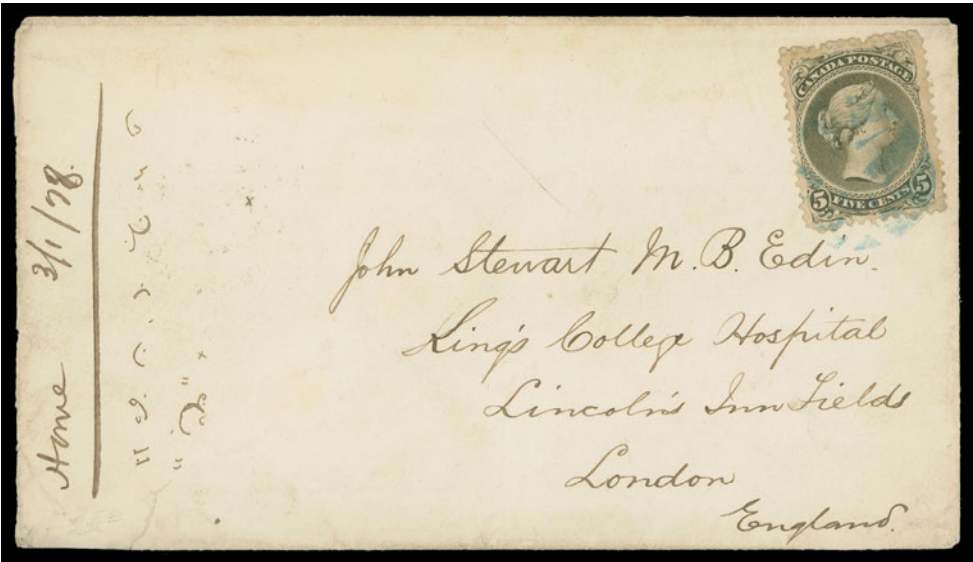 CANADA POSTAGE
5 FIVE CENTS 5
John Stewart M. B. Edin.
King's College Hospital
Lincoln's Inn Fields
London
England.
Home 3/1/78.